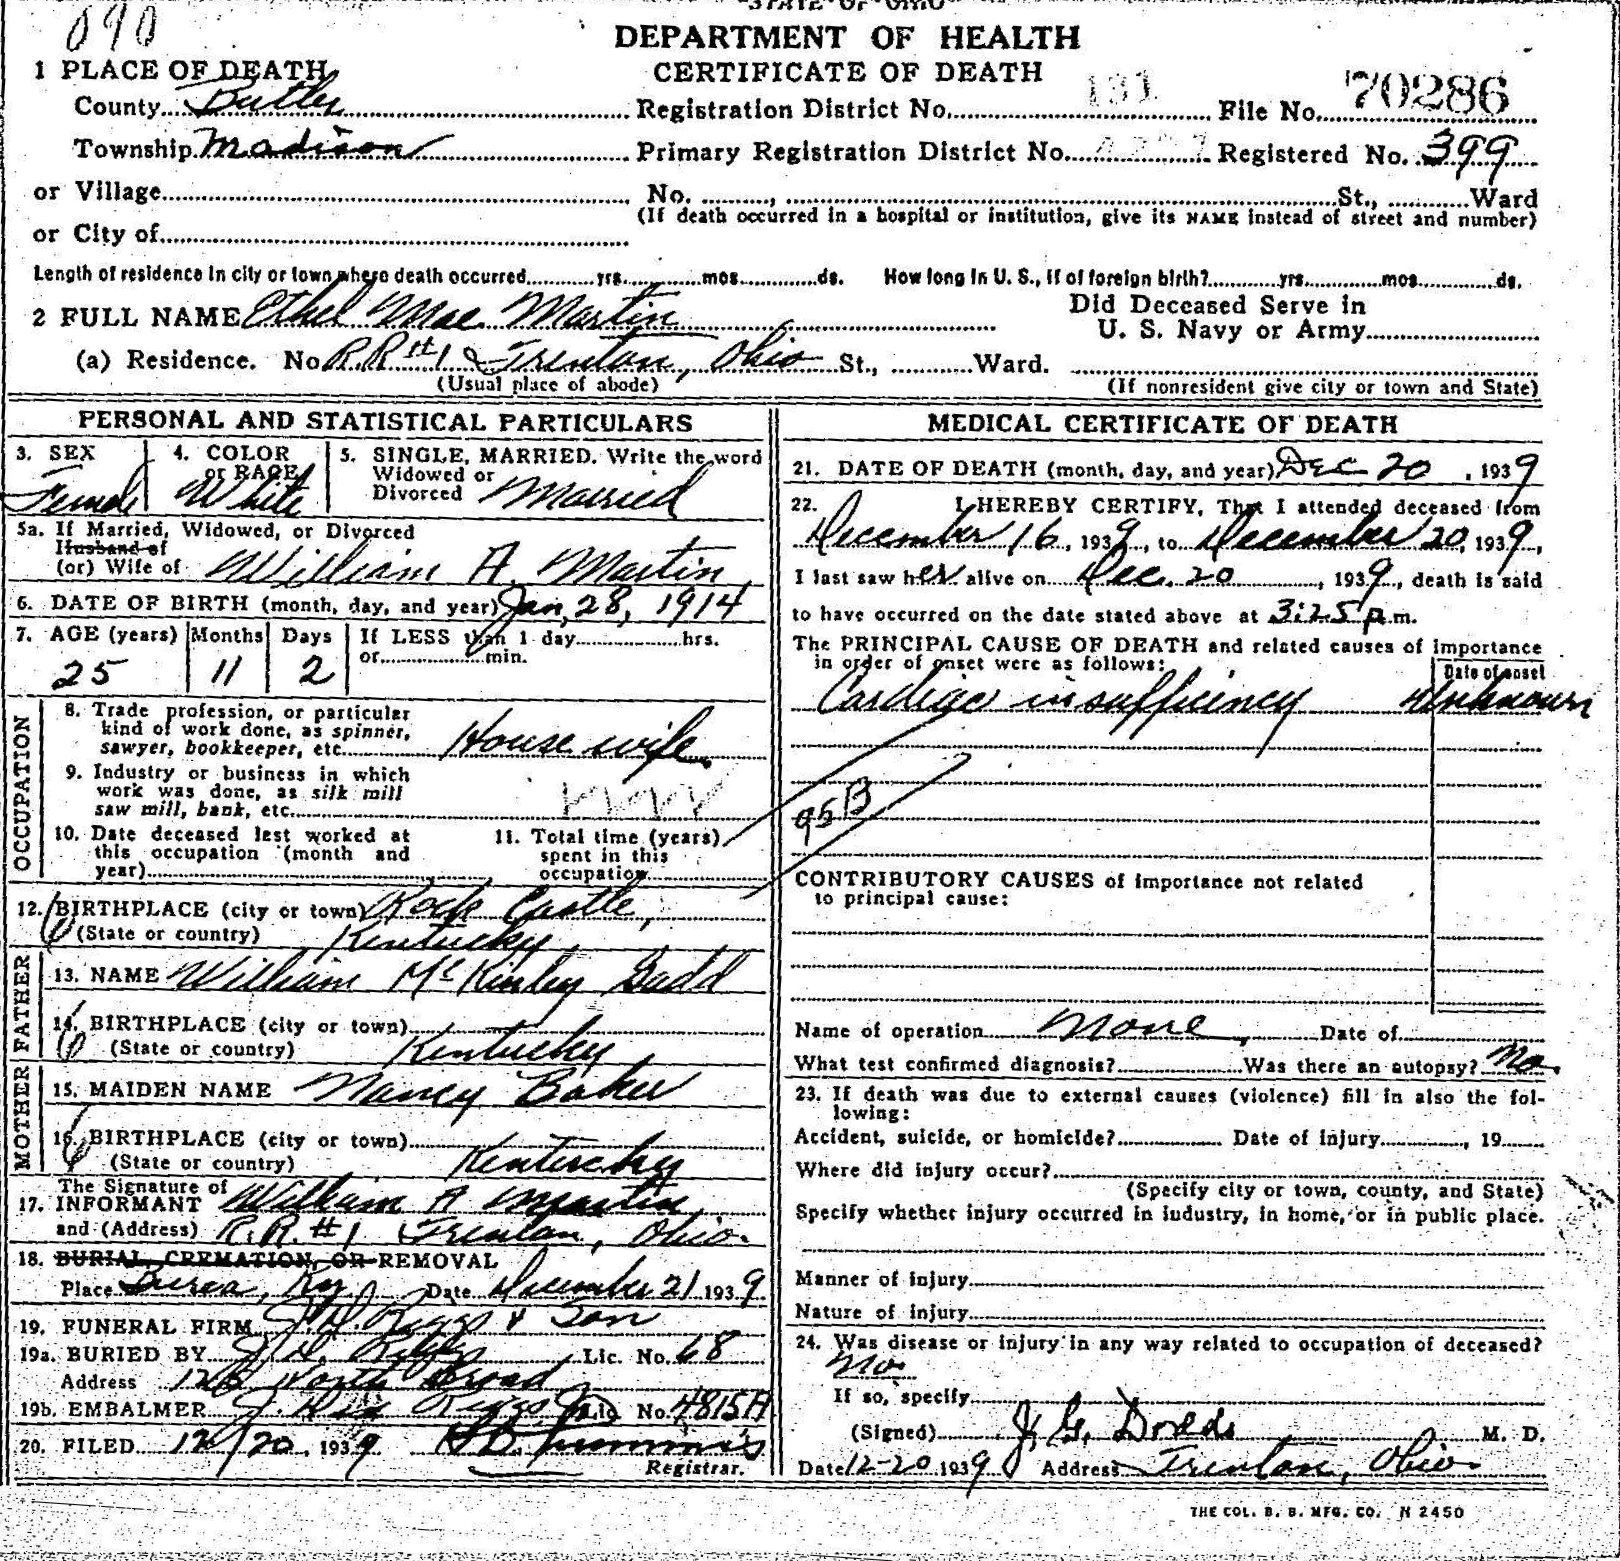 090
STATE OF OHIO
DEPARTMENT OF HEALTH
CERTIFICATE OF DEATH
1 PLACE OF DEATH
County Butler Registration District No. 131 File No. 70286
Township Madison Primary Registration District No. Registered No. 399
or Village No. , St., Ward
(If death occurred in a hospital or institution, give its NAME instead of street and number)
or City of
Length of residence in city or town where death occurred yrs. mos. ds. How long in U. S., if of foreign birth? yrs. mos. ds.
2 FULL NAME Ethel Mae Martin Did Deceased Serve in U. S. Navy or Army
(a) Residence. No. R.R #1 Trenton, Ohio St., Ward.
(Usual place of abode) (If nonresident give city or town and State)
PERSONAL AND STATISTICAL PARTICULARS
3. SEX Female 4. COLOR or RACE White 5. SINGLE, MARRIED. Write the word Widowed or Divorced Married
5a. If Married, Widowed, or Divorced
Husband of
(or) Wife of William A. Martin
6. DATE OF BIRTH (month, day, and year) Jan, 28, 1914
7. AGE (years) 25 Months 11 Days 2 If LESS than 1 day hrs.
or min.
OCCUPATION
8. Trade profession, or particular
kind of work done, as spinner,
sawyer, bookkeeper, etc. House wife.
9. Industry or business in which
work was done, as silk mill
saw mill, bank, etc.
10. Date deceased last worked at
this occupation (month and
year)
11. Total time (years)
spent in this
occupation
12. BIRTHPLACE (city or town) Rock Castle,
(State or country) Kentucky,
FATHER
13. NAME William McKinley Gadd
14. BIRTHPLACE (city or town)
(State or country) Kentucky
MOTHER
15. MAIDEN NAME Nancy Baker
16. BIRTHPLACE (city or town)
(State or country) Kentucky
The Signature of
17. INFORMANT William A Martin
and (Address) R.R. #1 Trenton, Ohio.
18. BURIAL, CREMATION, OR REMOVAL
Place Berea, Ky Date December 21 1939
19. FUNERAL FIRM J. H. Riggs & Son
19a. BURIED BY J. H. Riggs Lic. No. 68
Address 126 North Broad
19b. EMBALMER Riggs Lic No. 4815A
20. FILED 12/20, 1939
Registrar.
MEDICAL CERTIFICATE OF DEATH
21. DATE OF DEATH (month, day, and year) Dec 20, 1939
22. I HEREBY CERTIFY, That I attended deceased from
December 16, 1939, to December 20, 1939,
I last saw her alive on Dec. 20, 1939, death is said
to have occurred on the date stated above at 3:25 p.m.
The PRINCIPAL CAUSE OF DEATH and related causes of importance
in order of onset were as follows: Date of onset
Cardiac insufficiency Unknown
95B
CONTRIBUTORY CAUSES of importance not related
to principal cause:
Name of operation None, Date of
What test confirmed diagnosis? Was there an autopsy? No.
23. If death was due to external causes (violence) fill in also the fol-
lowing:
Accident, suicide, or homicide? Date of injury , 19
Where did injury occur?
(Specify city or town, county, and State)
Specify whether injury occurred in industry, in home, or in public place.
Manner of injury
Nature of injury
24. Was disease or injury in any way related to occupation of deceased?
No.
If so, specify
(Signed) J. G. Dodds M. D.
Date 12-20 1939 Address Trenton, Ohio.
THE COL. B. B. MFG. CO. N 2450